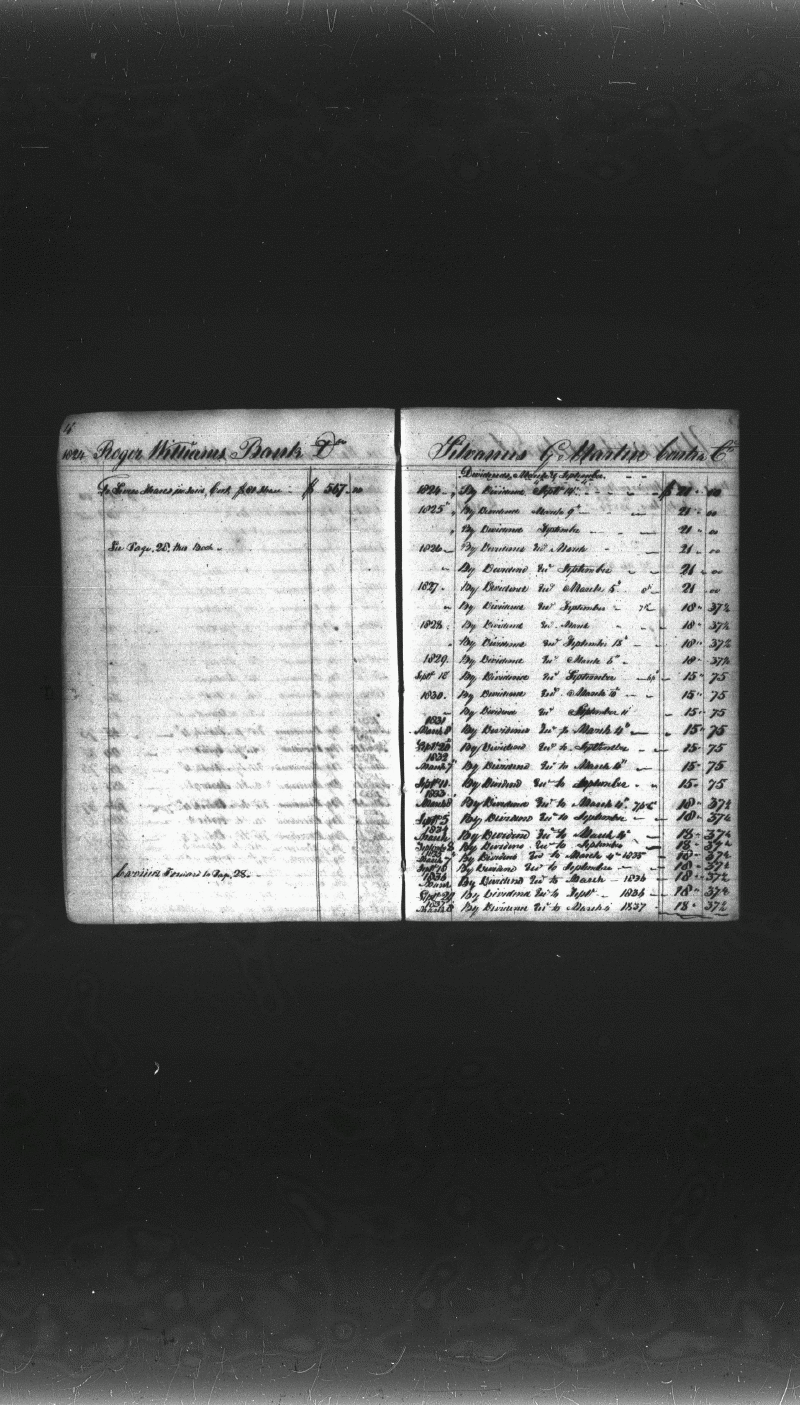 4
1824 Roger Williams Bank Dr
To Seven Shares in Said, Cost $ 81 Share $ 567.00
See Page. 28. this Book.
Carried Forward to Page. 28.
Silvanus G. Martin Contra Cr
Dividends, March & September
1824 By Dividend Sept $ 21.00
1825 By Dividend March 9 21.00
By Dividend September 21.00
1826 By Dividend Due March 21.00
By Dividend Due September 21.00
1827 By Dividend Due March 5 21.00
By Dividend Due September 18.37½
1828 By Dividend Due March 18.37½
By Dividend Due September 15 18.37½
1829 By Dividend Due March 18.37½
Sept By Dividend Due September 15.75
1830 By Dividend Due March 15.75
By Dividend Due September 15.75
1831
March 8 By Dividend Due to March 4 15.75
Sept 20 By Dividend Due to September 15.75
1832
March By Dividend Due to March 4 15.75
Sept 11 By Dividend Due to September 15.75
1833
March By Dividend Due to March 4 18.37½
Sept 5 By Dividend Due to September 18.37½
1834
March By Dividend Due to March 4 18.37½
By Dividend Due to September 18.37½
March By Dividend Due to March 4 1835 18.37½
Sept 10 By Dividend Due to September 18.37½
1836
March By Dividend Due to March 1836 18.37½
Sept 20 By Dividend Due to Sept 1836 18.37½
1837
March 8 By Dividend Due to March 1837 18.37½